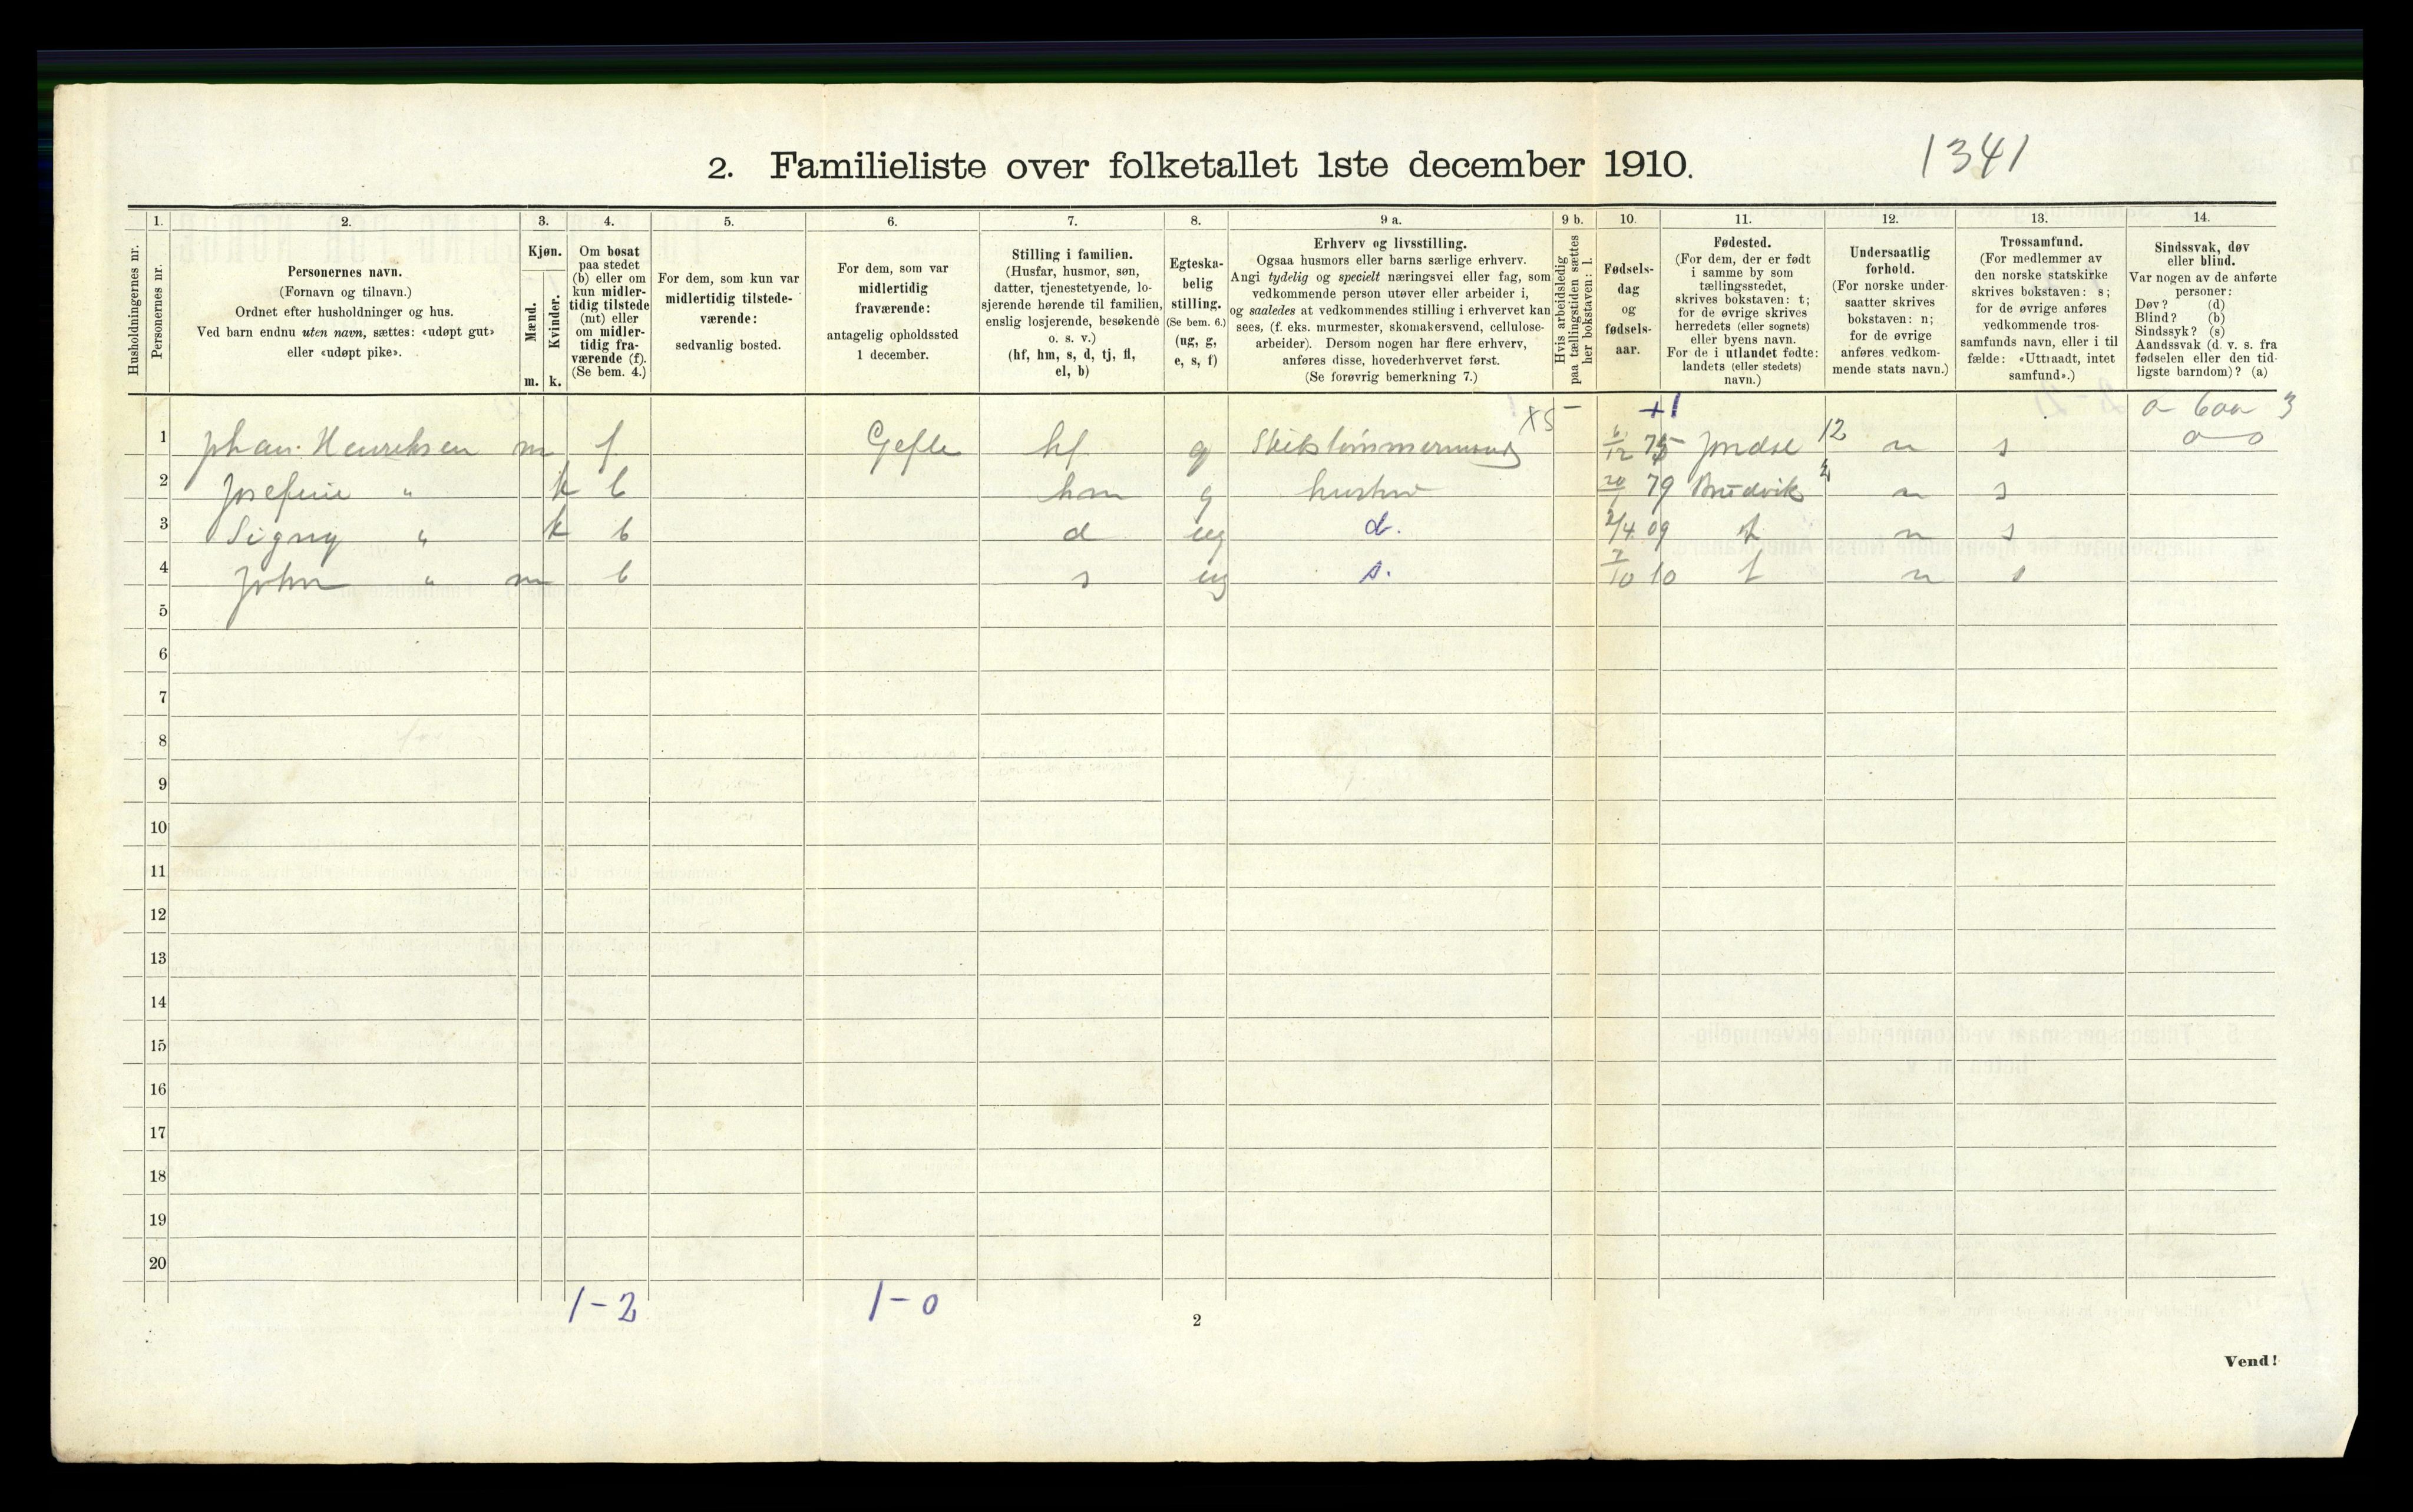 2. Familieliste over folketallet 1ste december 1910.
1341
Husholdningernes nr.
1.
Personernes nr.
2.
Personernes navn.
(Fornavn og tilnavn.)
Ordnet efter husholdninger og hus.
Ved barn endnu uten navn, sættes: «udøpt gut»
eller «udøpt pike».
3.
Kjøn.
Mænd.
Kvinder.
m. k.
4.
Om bosat
paa stedet
(b) eller om
kun midler-
tidig tilstede
(mt) eller
om midler-
tidig fra-
værende (f).
(Se bem. 4.)
5.
For dem, som kun var
midlertidig tilstede-
værende:
sedvanlig bosted.
6.
For dem, som var
midlertidig
fraværende:
antagelig opholdssted
1 december.
7.
Stilling i familien.
(Husfar, husmor, søn,
datter, tjenestetyende, lo-
sjerende hørende til familien,
enslig losjerende, besøkende
o. s. v.)
(hf, hm, s, d, tj, fl,
el, b)
8.
Egteska-
belig
stilling.
(Se bem. 6.)
(ug, g,
e, s, f)
9 a.
Erhverv og livsstilling.
Ogsaa husmors eller barns særlige erhverv.
Angi tydelig og specielt næringsvei eller fag, som
vedkommende person utøver eller arbeider i,
og saaledes at vedkommendes stilling i erhvervet kan
sees, (f. eks. murmester, skomakersvend, cellulose-
arbeider). Dersom nogen har flere erhverv,
anføres disse, hovederhvervet først.
(Se forøvrig bemerkning 7.)
9 b.
Hvis arbeidsledig
paa tællingstiden sættes
her bokstaven: l.
10.
Fødsels-
dag
og
fødsels-
aar.
11.
Fødested.
(For dem, der er født
i samme by som
tællingsstedet,
skrives bokstaven: t;
for de øvrige skrives
herredets (eller sognets)
eller byens navn.
For de i utlandet fødte:
landets (eller stedets)
navn.)
12.
Undersaatlig
forhold.
(For norske under-
saatter skrives
bokstaven: n;
for de øvrige
anføres vedkom-
mende stats navn.)
13.
Trossamfund.
(For medlemmer av
den norske statskirke
skrives bokstaven: s;
for de øvrige anføres
vedkommende tros-
samfunds navn, eller i til
fælde: «Uttraadt, intet
samfund».)
14.
Sindssvak, døv
eller blind.
Var nogen av de anførte
personer:
Døv? (d)
Blind? (b)
Sindssyk? (s)
Aandssvak (d. v. s. fra
fødselen eller den tid-
ligste barndom)? (a)
XS - +1 3
1 Johan Henriksen m f Gefle hf g 6/12 75 12 n s
2 Josefine " k b hm g hustru 79 Brudvik n s
3 Signy " k b d ug d. 2/4 09 t n s
4 John " m b s ug s. 7/10 10 t n s
5
6
7
8
9
10
11
12
13
14
15
16
17
18
19
20
1-2 1-0
2
Vend!